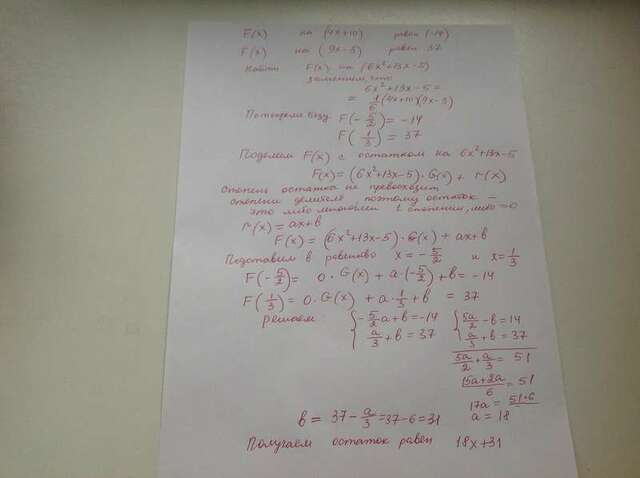 F(x) на (4x+10) равен (-14)
F(x) на (9x-3) равен 37
Найти F(x) на (6x²+13x-5)
заметим, что
6x²+13x-5=
= 1/6 (4x+10)(9x-3)
По теореме Безу F(-5/2) = -14
F(1/3) = 37
Поделим F(x) с остатком на 6x²+13x-5
F(x)=(6x²+13x-5)·G(x)+ r(x)
Степень остатка не превосходит
степени делителя поэтому остаток –
это либо многочлен 1 степени, либо =0
r(x)=ax+b
F(x)=(6x²+13x-5)·G(x)+ax+b
Подставим в равенство x=-5/2 и x=1/3
F(-5/2)= 0·G(x)+a·(-5/2)+b=-14
F(1/3)=0·G(x)+a·1/3+b = 37
решаем { -5/2 a+b=-14 { 5a/2 -b=14
a/3+b=37 a/3+b=37
5a/2+a/3=51
15a+2a/6=51
17a=51·6
b = 37-a/3=37-6=31 a=18
Получаем остаток равен 18x+31